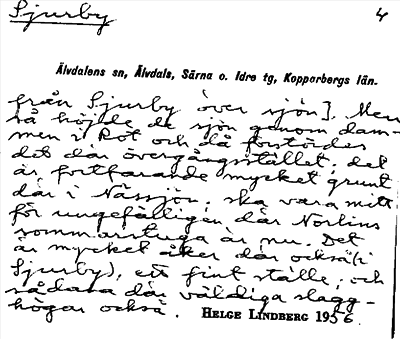 Sjurby
4
Älvdalens sn, Älvdals, Särna o. Idre tg, Kopparbergs län.
från Sjurby över sjön]. Men
så höjde de sjön genom dam-
men i Rot och då förstördes
det där övergångsstället; det
är fortfarande mycket grunt
där i Nässjön, ska vara mitt
för ungefärligen där Norlins
sommarstuga är nu. Det
är mycket åker där också (i
Sjurby), ett fint ställe; och
sådana där väldiga slagg-
högar också. HELGE LINDBERG 1956.